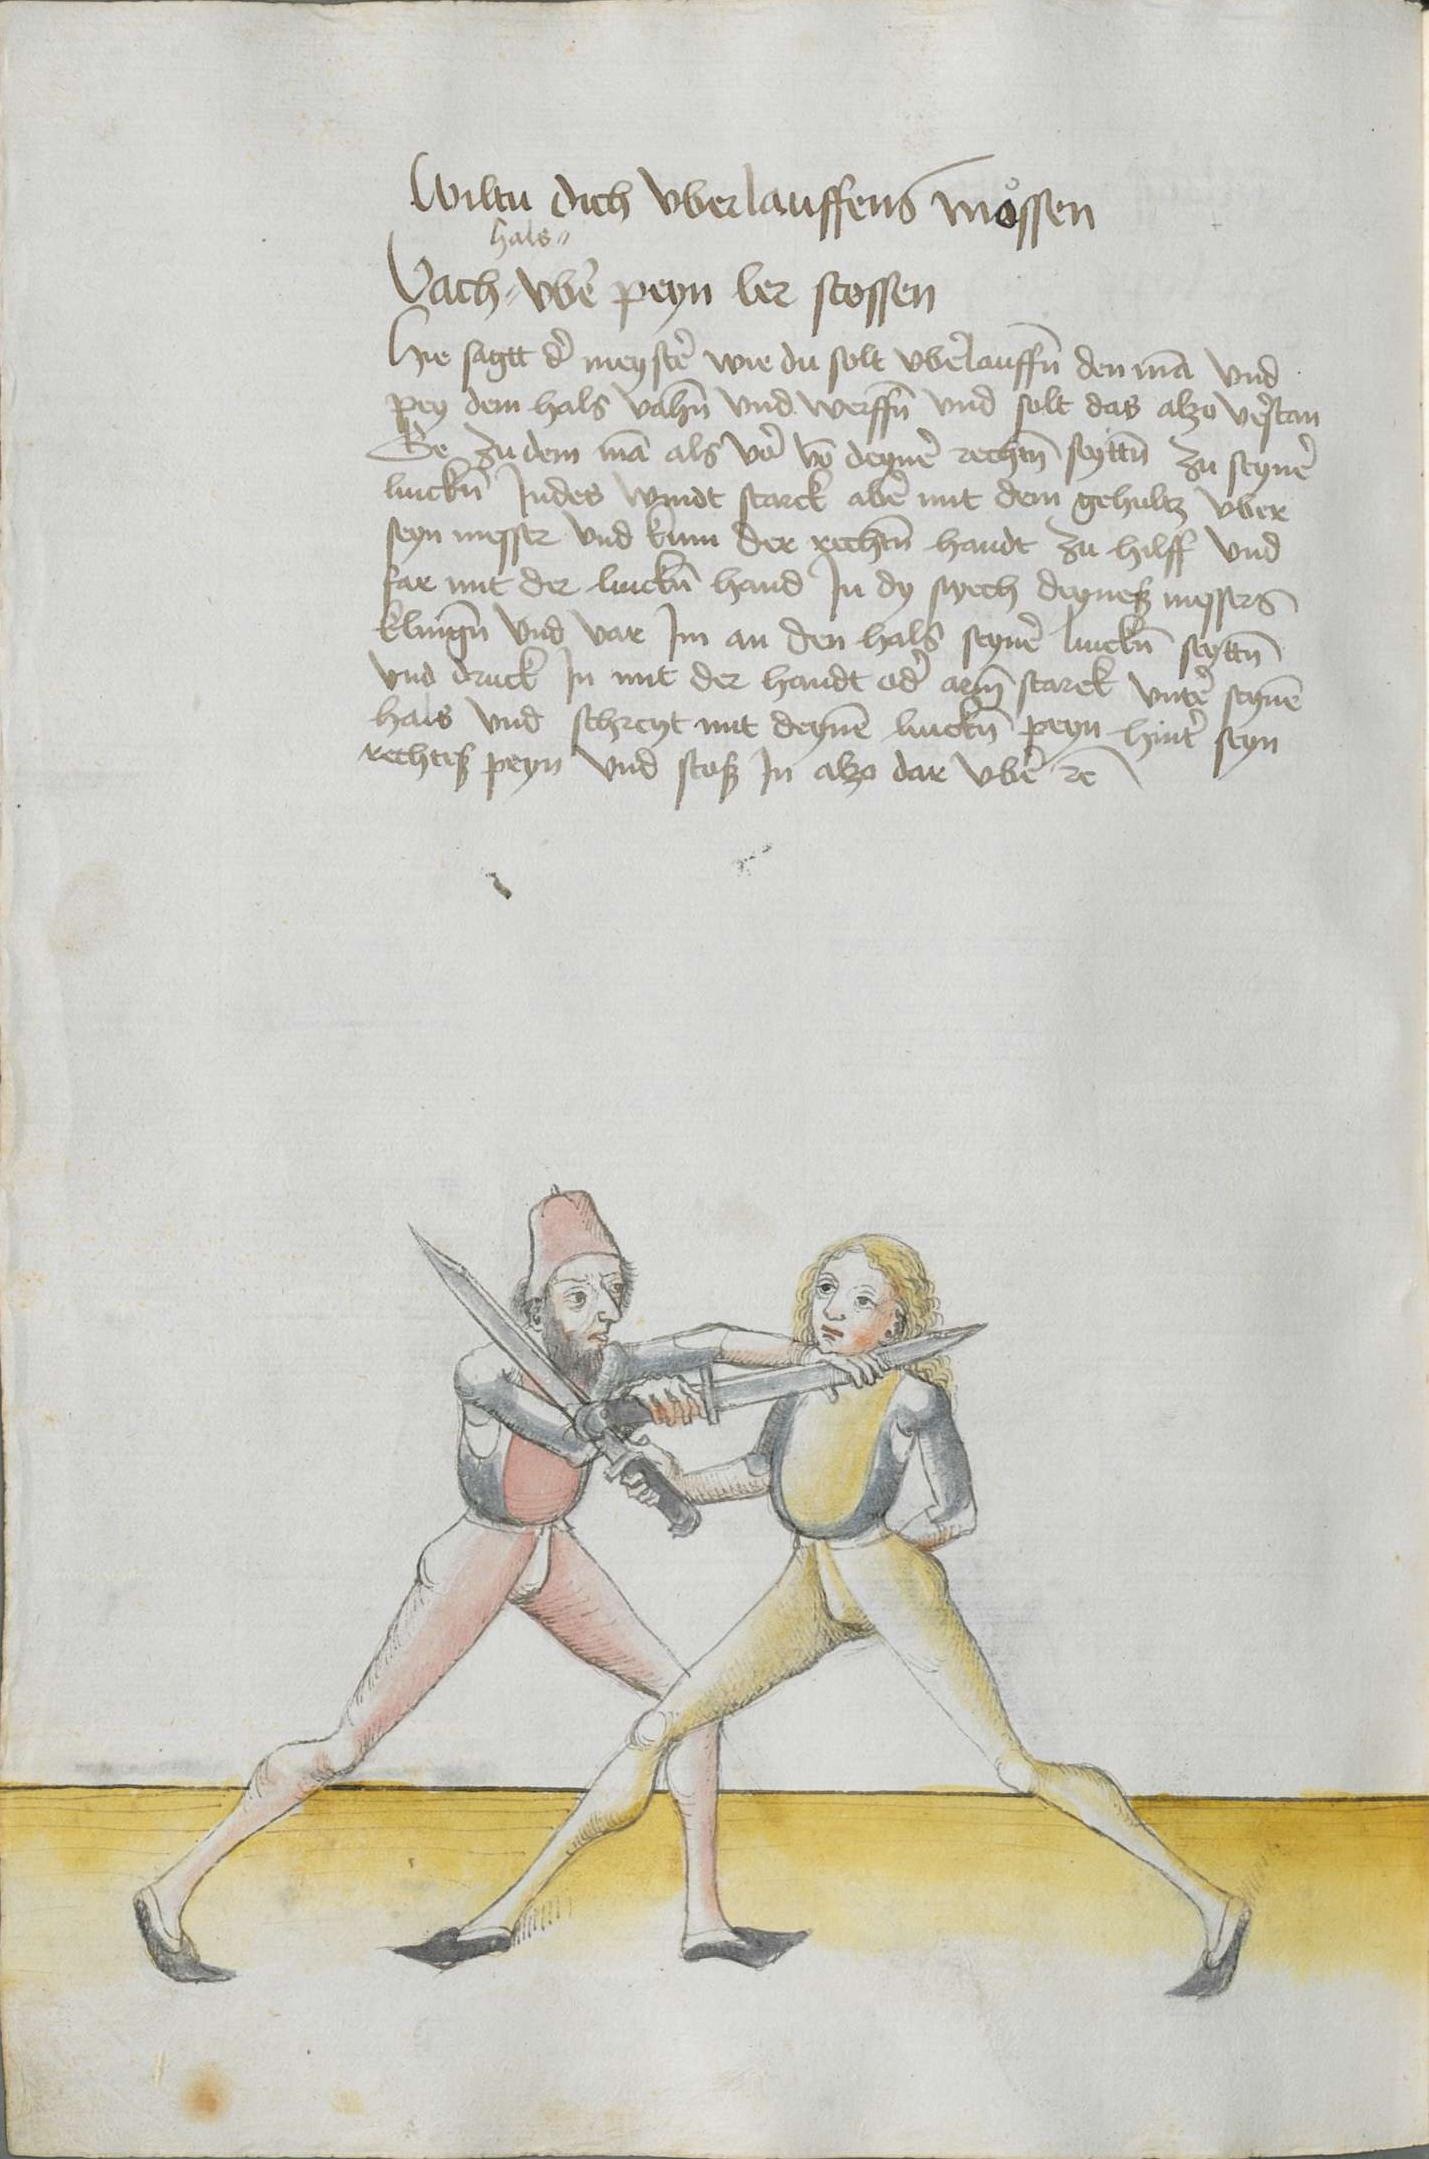 Wiltu dich vberlauffens mossen
hals
Vach vbē peyn ler stossen
Hie sagtt d' meyst' wie du solt vb'lauffn̄ den mā vnd
pey dem hals vahn̄ vnd werffn̄ vnd solt das alzo v'stan
Ge zu dem mā als vor vō deyn' rechtn̄ seyttn̄ zu seyn'
linckn̄ Indes wyndt starck ab' mit dem gehultz vber
seyn messer vnd kum der rechtn̄ handt zu hilff vnd
far mit der linckn̄ hand In dy swech deyneß messers
klingn̄ vnd var Im an den hals seyn' linckn̄ seyttn̄
vnd druck In mit der handt od' arm starck vnt' seynē
hals vnd schreyt mit deynē linckn̄ peyn hint' seyn
rechtiß peyn vnd stoß In alzo dar vb' ꝛc̄